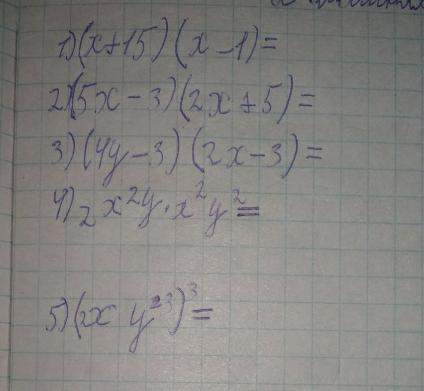 1) (x+15) (x-1)=
2) (5x-3) (2x+5)=
3) (4y-3) (2x-3)=
4) 2x²y·x²y²=
5) (2x y²³)³=